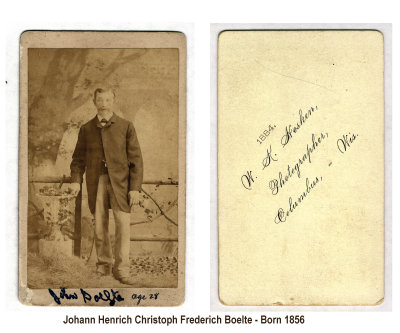 John Boelte age 28
1884.
W. K. Hoshen,
Photographer,
Columbus, Wis.
Johann Henrich Christoph Frederich Boelte - Born 1856